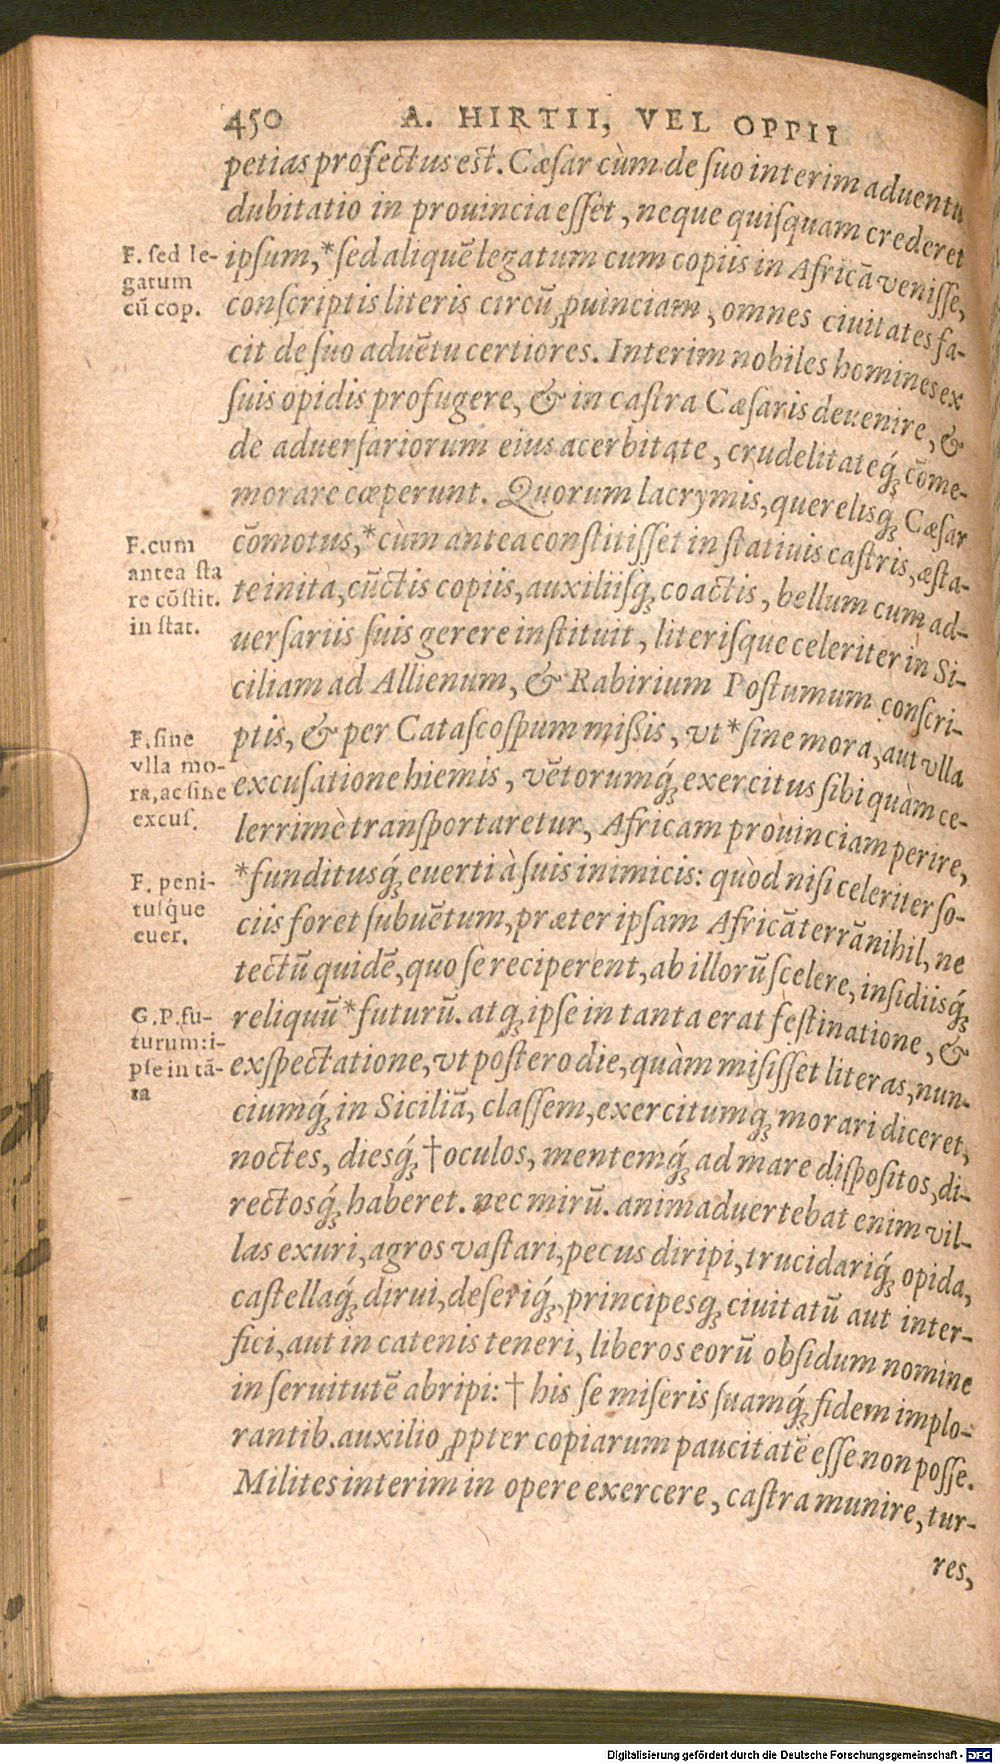 450 A. HIRTII, VEL OPPII
petias profectus est. Cæſar cùm de ſuo interim aduentu
dubitatio in prouincia eſſet, neque quiſquam crederet
ipſum,* ſed aliquē legatum cum copiis in Africā veniſſe,
conſcriptis literis circū ꝓuinciam, omnes ciuitates fa-
cit de ſuo aduētu certiores. Interim nobiles homines ex
ſuis opidis profugere, & in caſtra Cæſaris deuenire, &
de aduerſariorum eius acerbitate, crudelitateq́ꝫ cōme-
morare cœperunt. Quorum lacrymis, querelisqꝫ Cæſar
cōmotus,* cùm antea conſtitiſſet in ſtatiuis caſtris, æſta-
te inita, cūctis copiis, auxiliiſqꝫ coactis, bellum cum ad-
uerſariis ſuis gerere inſtituit, literiſque celeriter in Si-
ciliam ad Allienum, & Rabirium Poſtumum conſcri-
ptis, & per Cataſcoſpum miſsis, vt * ſine mora, aut vlla
excuſatione hiemis, vētorumq́ꝫ exercitus ſibi quàm ce-
lerrimè tranſportaretur, Africam prouinciam perire,
*funditusq́ꝫ euerti à ſuis inimicis: quòd niſi celeriter ſo-
ciis foret ſubuētum, præter ipſam Africā terrā nihil, ne
tectū quidē, quo ſe reciperent, ab illorū ſcelere, inſidiisq́ꝫ
reliquū * futurū. atqꝫ ipſe in tanta erat feſtinatione, &
exſpectatione, vt poſtero die, quàm miſiſſet literas, nun-
ciumq́ꝫ in Siciliā, claſſem, exercitumqꝫ morari diceret,
noctes, diesq́ꝫ † oculos, mentemq́ꝫ ad mare diſpoſitos, di-
rectosq́ꝫ haberet. nec mirū. animaduertebat enim vil-
las exuri, agros vaſtari, pecus diripi, trucidariq́ꝫ opida,
caſtellaq́ꝫ dirui, deſeriq́ꝫ, principesqꝫ ciuitatū aut inter-
fici, aut in catenis teneri, liberos eorū obſidum nomine
in ſeruitutē abripi: † his ſe miſeris ſuamq́ꝫ fidem implo-
rantib. auxilio ꝓpter copiarum paucitatē eſſe non poſſe.
Milites interim in opere exercere, caſtra munire, tur-
res,
F. ſed le-
gatum
cū cop.
F. cum
antea ſta
re cōſtit.
in ſtat.
F. ſine
vlla mo-
ra, ac ſine
excuſ.
F. peni-
tuſq́ue
euer.
G. P. fu-
turum: i-
pſe in tā-
ta
Digitalisierung gefördert durch die Deutsche Forschungsgemeinschaft - DFG